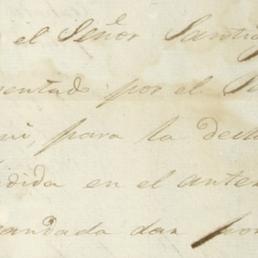 el Señor Santi
sentado por el S
para la decl
dida en el ante
andada dar por